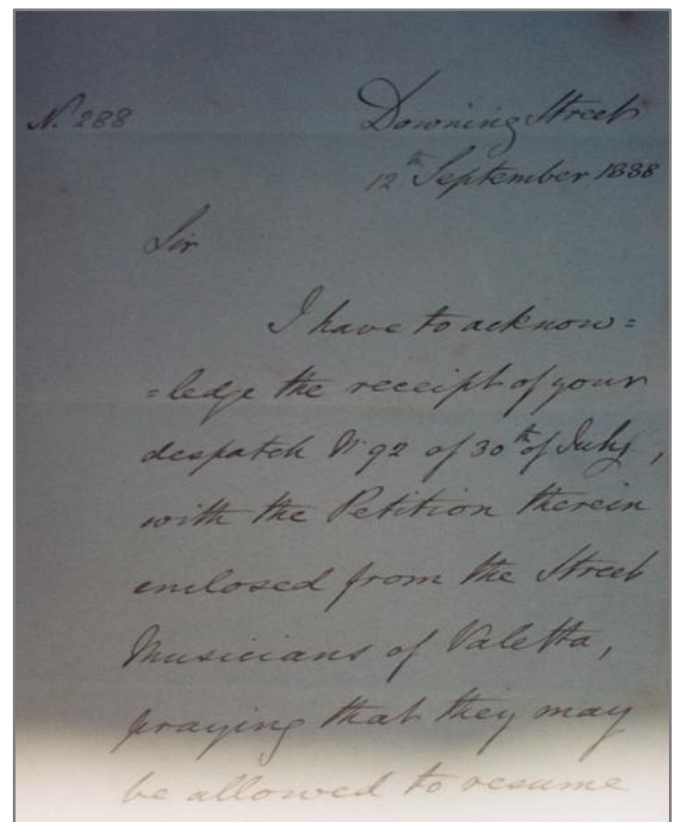 No. 288
Downing Street
12th September 1838
Sir
I have to acknow=
=ledge the receipt of your
despatch No 92 of 30th of July,
with the Petition therein
enclosed from the Street
Musicians of Valetta,
praying that they may
be allowed to resume